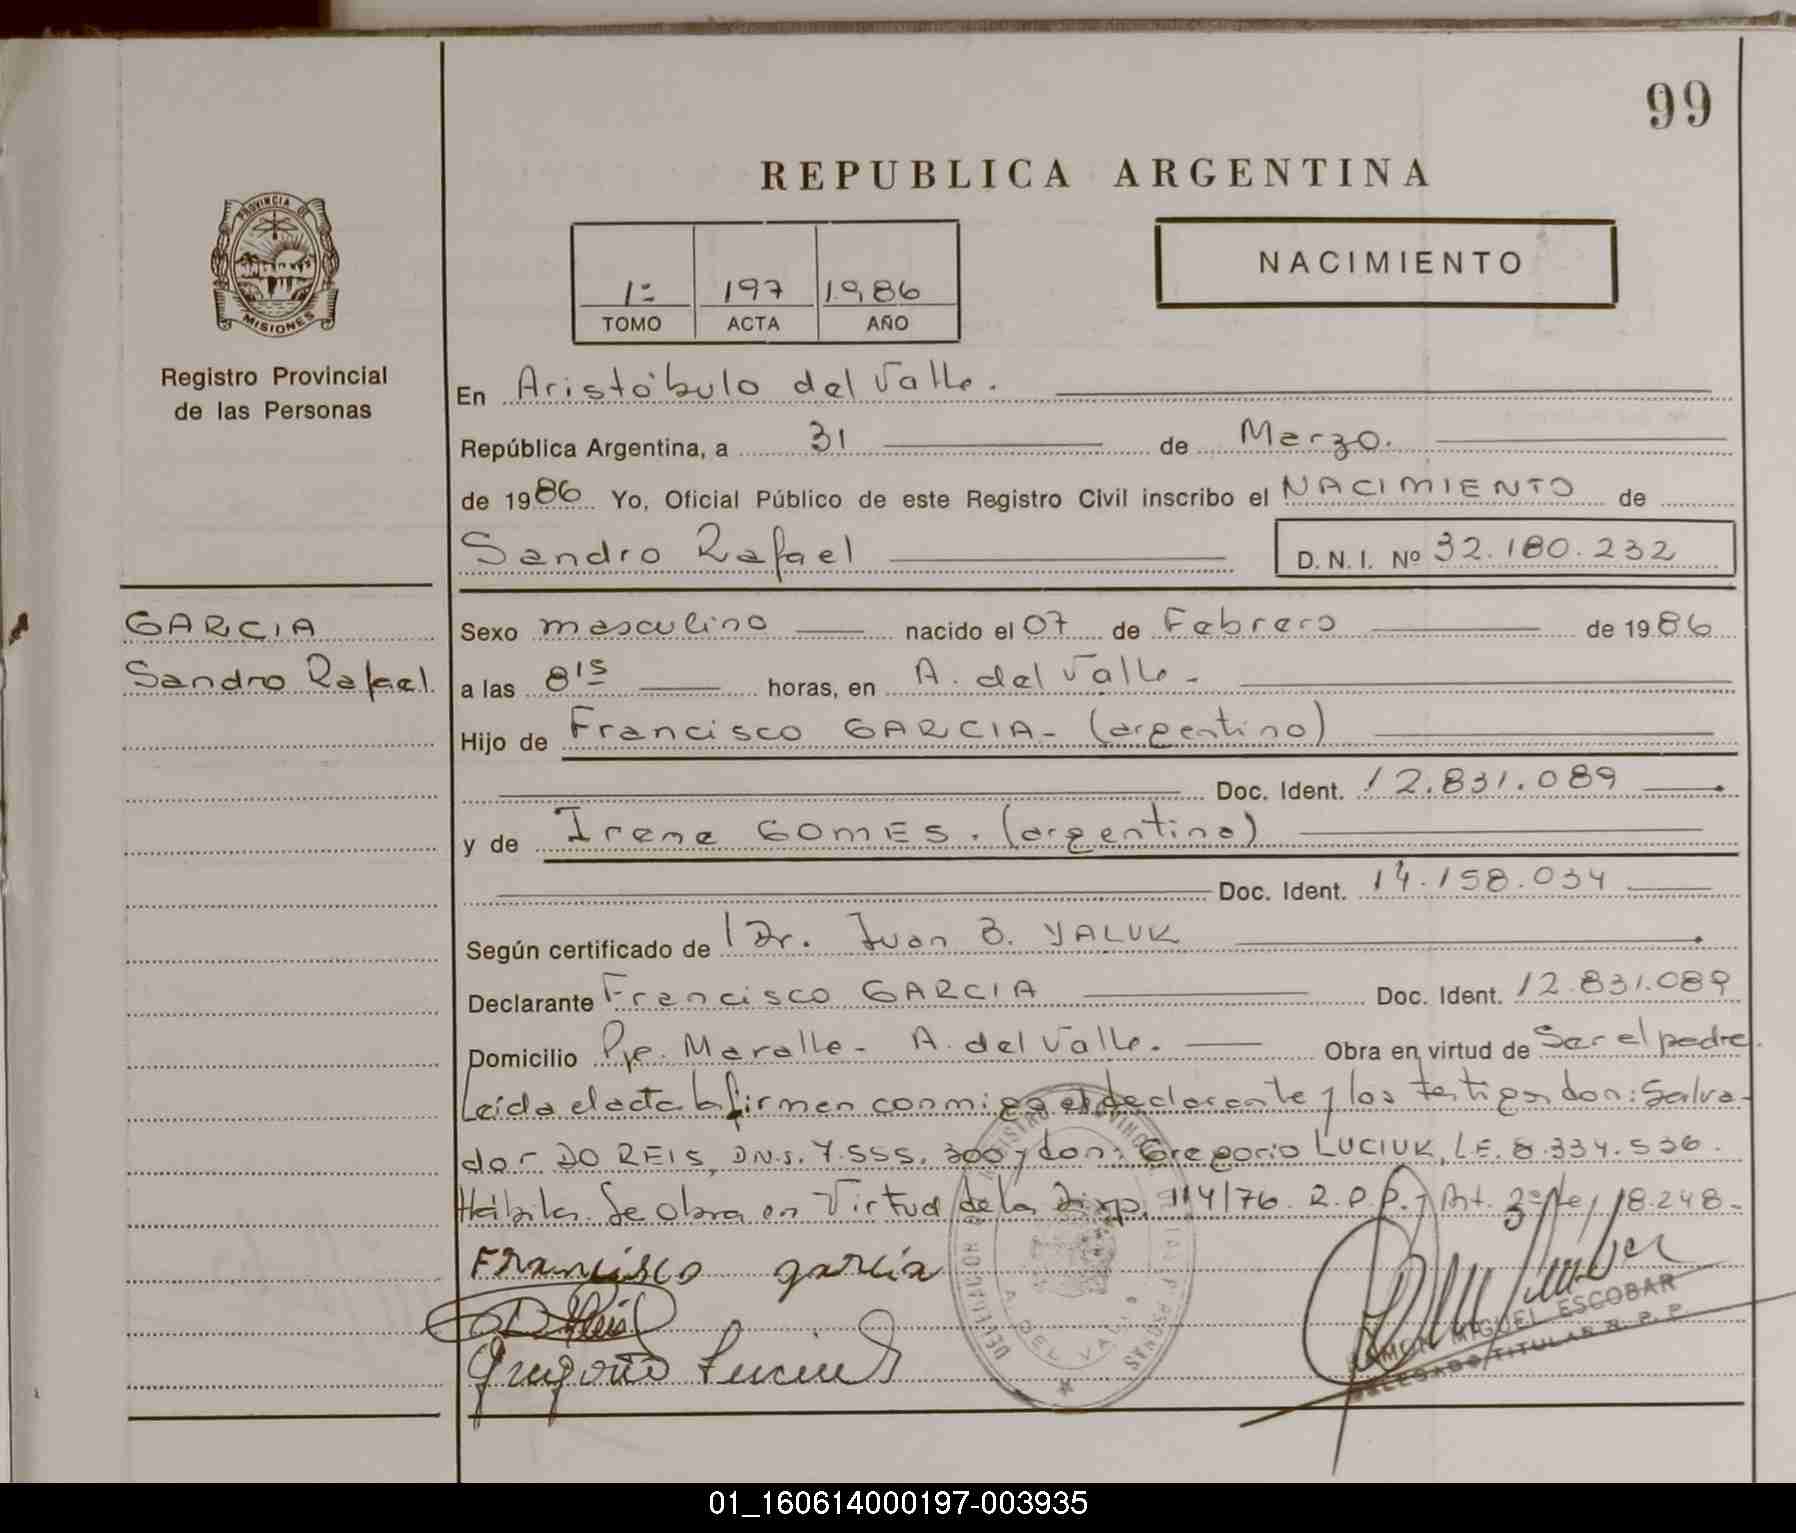 99
REPUBLICA ARGENTINA
PROVINCIA DE
MISIONES
Registro Provincial
de las Personas
1º 197 1986
TOMO ACTA AÑO
NACIMIENTO
En Aristóbulo del Valle.
República Argentina, a 31 de Marzo.
de 1986 Yo, Oficial Público de este Registro Civil inscribo el NACIMIENTO de
Sandro Rafael D. N. I. Nº 32.180.232
GARCIA
Sandro Rafael
Sexo masculino nacido el 07 de Febrero de 1986
a las 8 15 horas, en A. del Valle -
Hijo de Francisco GARCIA - (argentino)
Doc. Ident. 12.831.089
y de Irene GOMES. (argentina)
Doc. Ident. 14.158.034
Según certificado de Dr. Juan B. YALUK
Declarante Francisco GARCIA Doc. Ident. 12.831.089
Domicilio Pje. Maralle - A. del Valle. Obra en virtud de Ser el padre.
Leída el acta la firman conmigo el declarante y los testigos don: Salva-
dor DO REIS, D.N.I. 7.555.300 y don: Gregorio LUCIUK, L.E. 8.334.536.
Hábiles. Se obra en Virtud de la Disp. 114/76. R.P.P. y Art. 3º 18.248-
Francisco garcía
Gregorio Luciuk
RAMON MIGUEL ESCOBAR
DELEGADO TITULAR R. P. P.
01_160614000197-003935